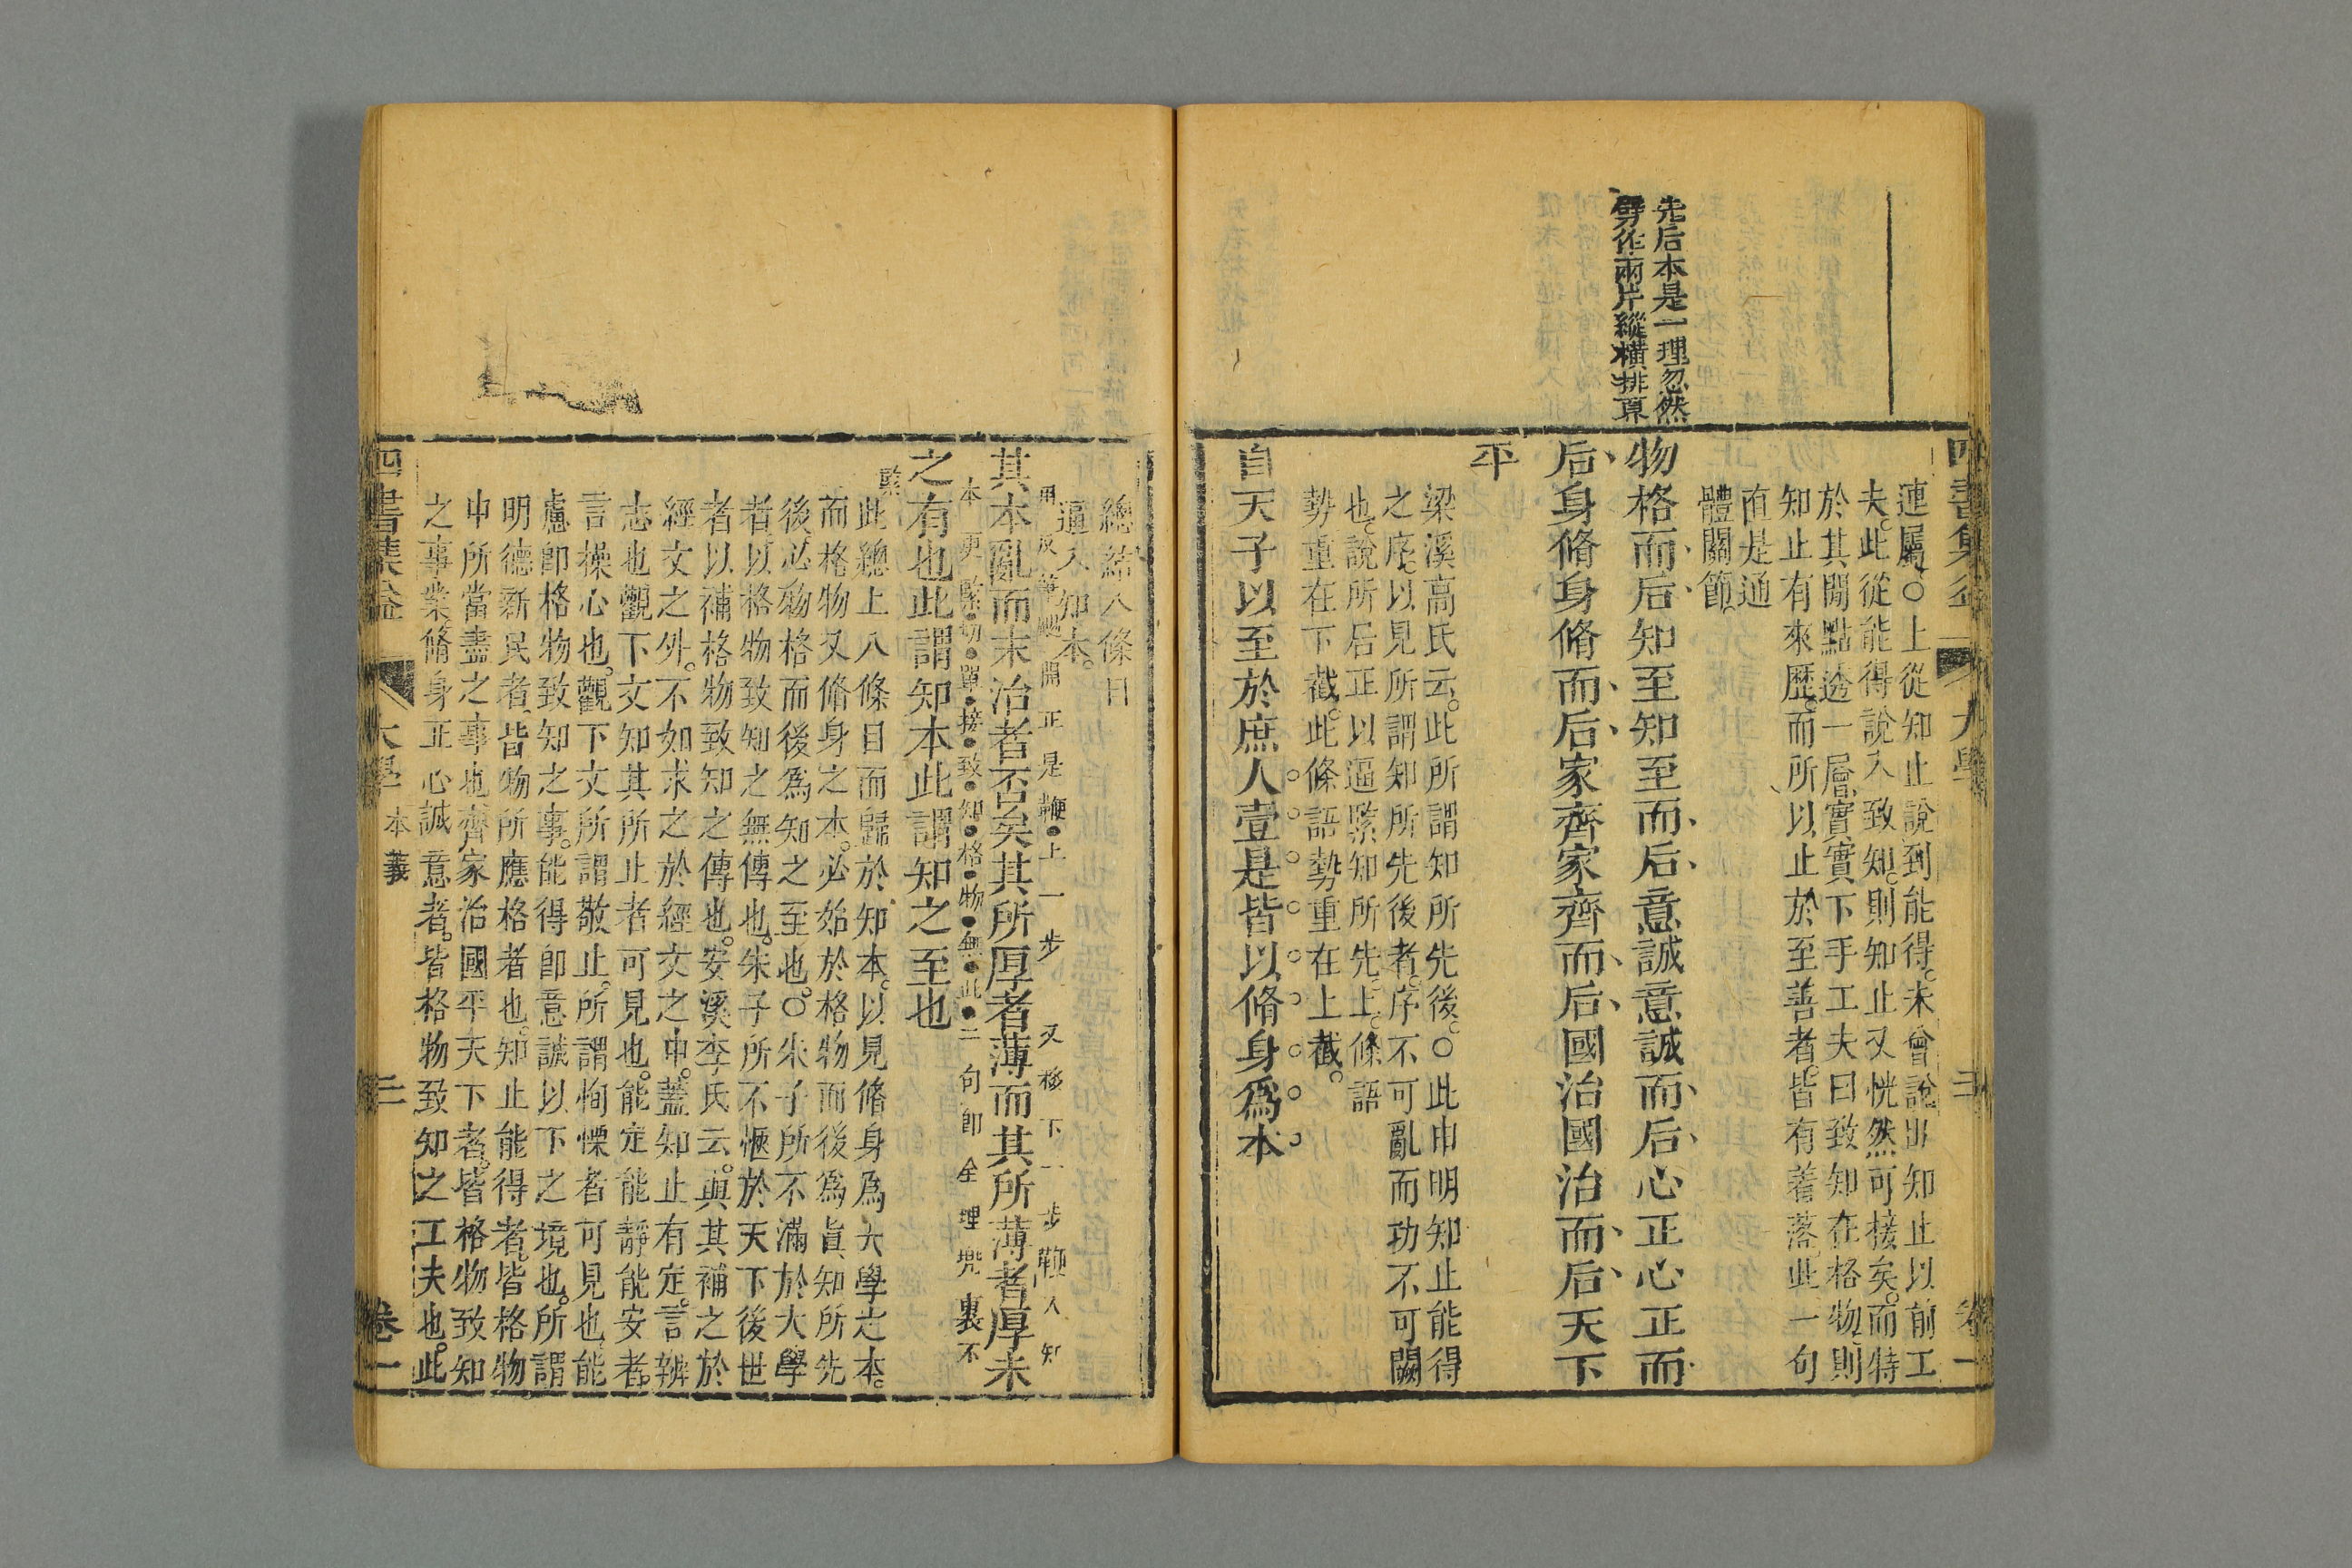 先后本是一理忽然
劈作兩片縱橫排衮
四書集益
大學
三
卷一
連屬○上從知止說到能得。未曾說出知止以前工
夫。此從能得說入致知。則知止又恍然可接矣。而特
於其間點透一層實實下手工夫曰致知在格物。則
知止有來歷。而所以止於至善者。皆有着落。此一句
直是通
體關節。
物格而后知至知至而后意誠意誠而后心正心正而
后身脩身脩而后家齊家齊而后國治國治而后天下
平
梁溪高氏云。此所謂知所先後。○此申明知止能得
之序。以見所謂知所先後者。序不可亂而功不可闕
也。說所后正以逼緊知所先。上條語
勢重在下截。此條語勢重在上截。
自天子以至於庶人壹是皆以脩身爲本
總結八條目
逼入知本。
用反筆翻開正是鞭上一步又極下一步鞭人知
其本亂而末治者否矣其所厚者薄而其所薄者厚未
本更緊切單接致知格物無此二句卽全理兜裹不
之有也此謂知本此謂知之至也
緊
此總上八條目而歸於知本。以見脩身爲大學之本。
而格物又脩身之本。必始於格物而後爲眞知所先
後。必物格而後爲知之至也。○朱子所不滿於大學
者。以格物致知之無傳也。朱子所不愜於天下後世
者以補格物致知之傳也。安溪李氏云。與其補之於
經文之外。不如求之於經文之中。蓋知止有定。言辨
志也觀下文知其所止者可見也。能定能靜能安者。
言操心也。觀下文所謂敬止。所謂恂慄者可見也。能
慮卽格物致知之事。能得卽意誠以下之境也。所謂
明德新民者。皆物所應格者也。知止能得者。皆格物
中所當盡之事也齊家治國平天下者。皆格物致知
之事業。脩身正心誠意者。皆格物致知之工夫也。此
四書集益
大學
本義
三
卷一